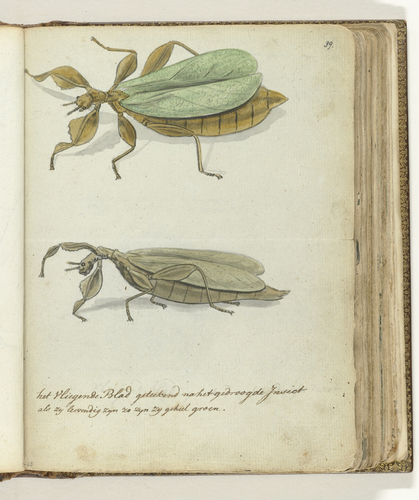 39.
het Vliegende Blad geteekend na het gedroogde Insect
als zy levendig zyn zo zyn zy geheel groen.